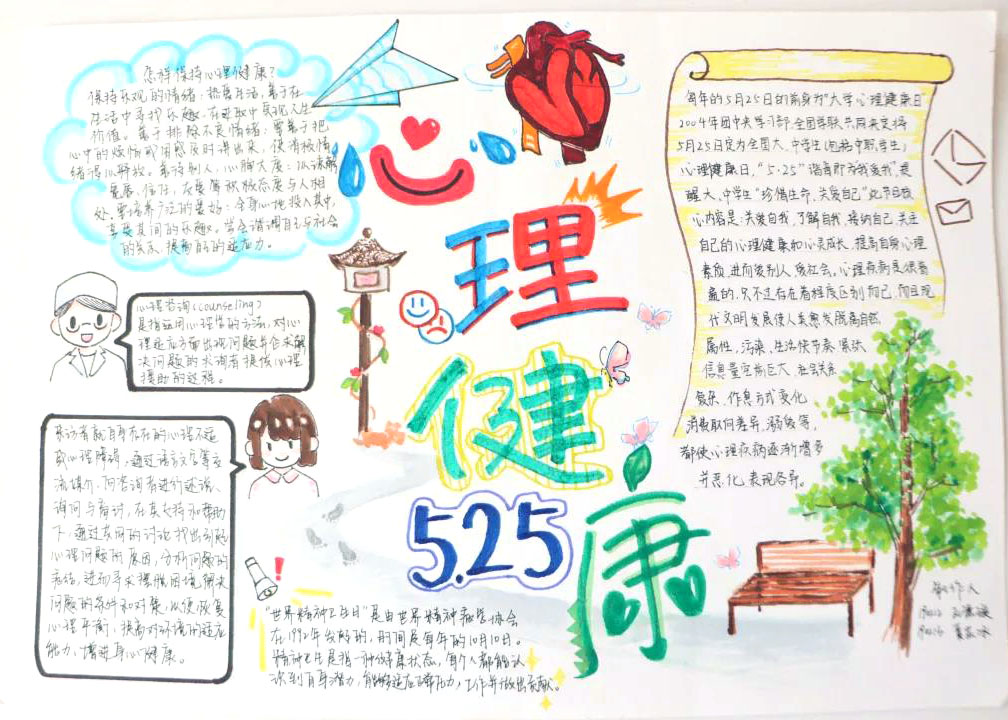 怎样保持心理健康?
保持乐观的情绪:热爱生活,善于在
生活中寻找乐趣,在进取中实现人生
价值。善于排除不良情绪:要善于把
心中的烦恼或困惑及时讲出来,使消极情
绪得以释放。善待别人,心胸大度:以谅解
宽容、信任、友爱等积极态度与人相
处。要培养广泛的爱好:全身心地投入其中,
享受其间的乐趣。学会协调自己与社会
的关系,提高自己的适应力。
心理健康
5.25
每年的5月25日的前身为"大学心理健康日"
2004年团中央学习部、全国学联共同决定将
5月25日定为全国大、中学生(包括中职学生)
心理健康日,"5·25"谐音即为"我爱我",提
醒大、中学生"珍惜生命,关爱自己"此节日核
心内容是:关爱自我,了解自我,接纳自己,关注
自己的心理健康和心灵成长,提高自身心理
素质,进而爱别人,爱社会。心理疾病是很普
遍的,只不过存在着程度区别而已,而且现
代文明发展使人类愈发脱离自然
属性,污染、生活快节奏、紧张、
信息量空前巨大、社会关系
复杂、作息方式变化、
消费取向差异、溺爱等,
都使心理疾病逐渐增多
并恶化,表现各异。
心理咨询(counseling)
是指运用心理学的方法,对心
理适应方面出现问题并企求解
决问题的求询者提供心理
援助的过程。
来访者就自身存在的心理不适
或心理障碍,通过语言文字等交
流媒介,向咨询者进行述说、
询问与商讨,在其支持和帮助
下,通过共同的讨论找出引起
心理问题的原因,分析问题的
症结,进而寻求摆脱困境解决
问题的条件和对策,以便恢复
心理平衡,提高对环境的适应
能力,增进身心健康。
"世界精神卫生日"是由世界精神病学协会
在1992年发起的,时间是每年的10月10日。
精神卫生是指一种健康状态,每个人都能认
识到自身潜力,能够适应正常压力,工作并做出贡献。
制作人